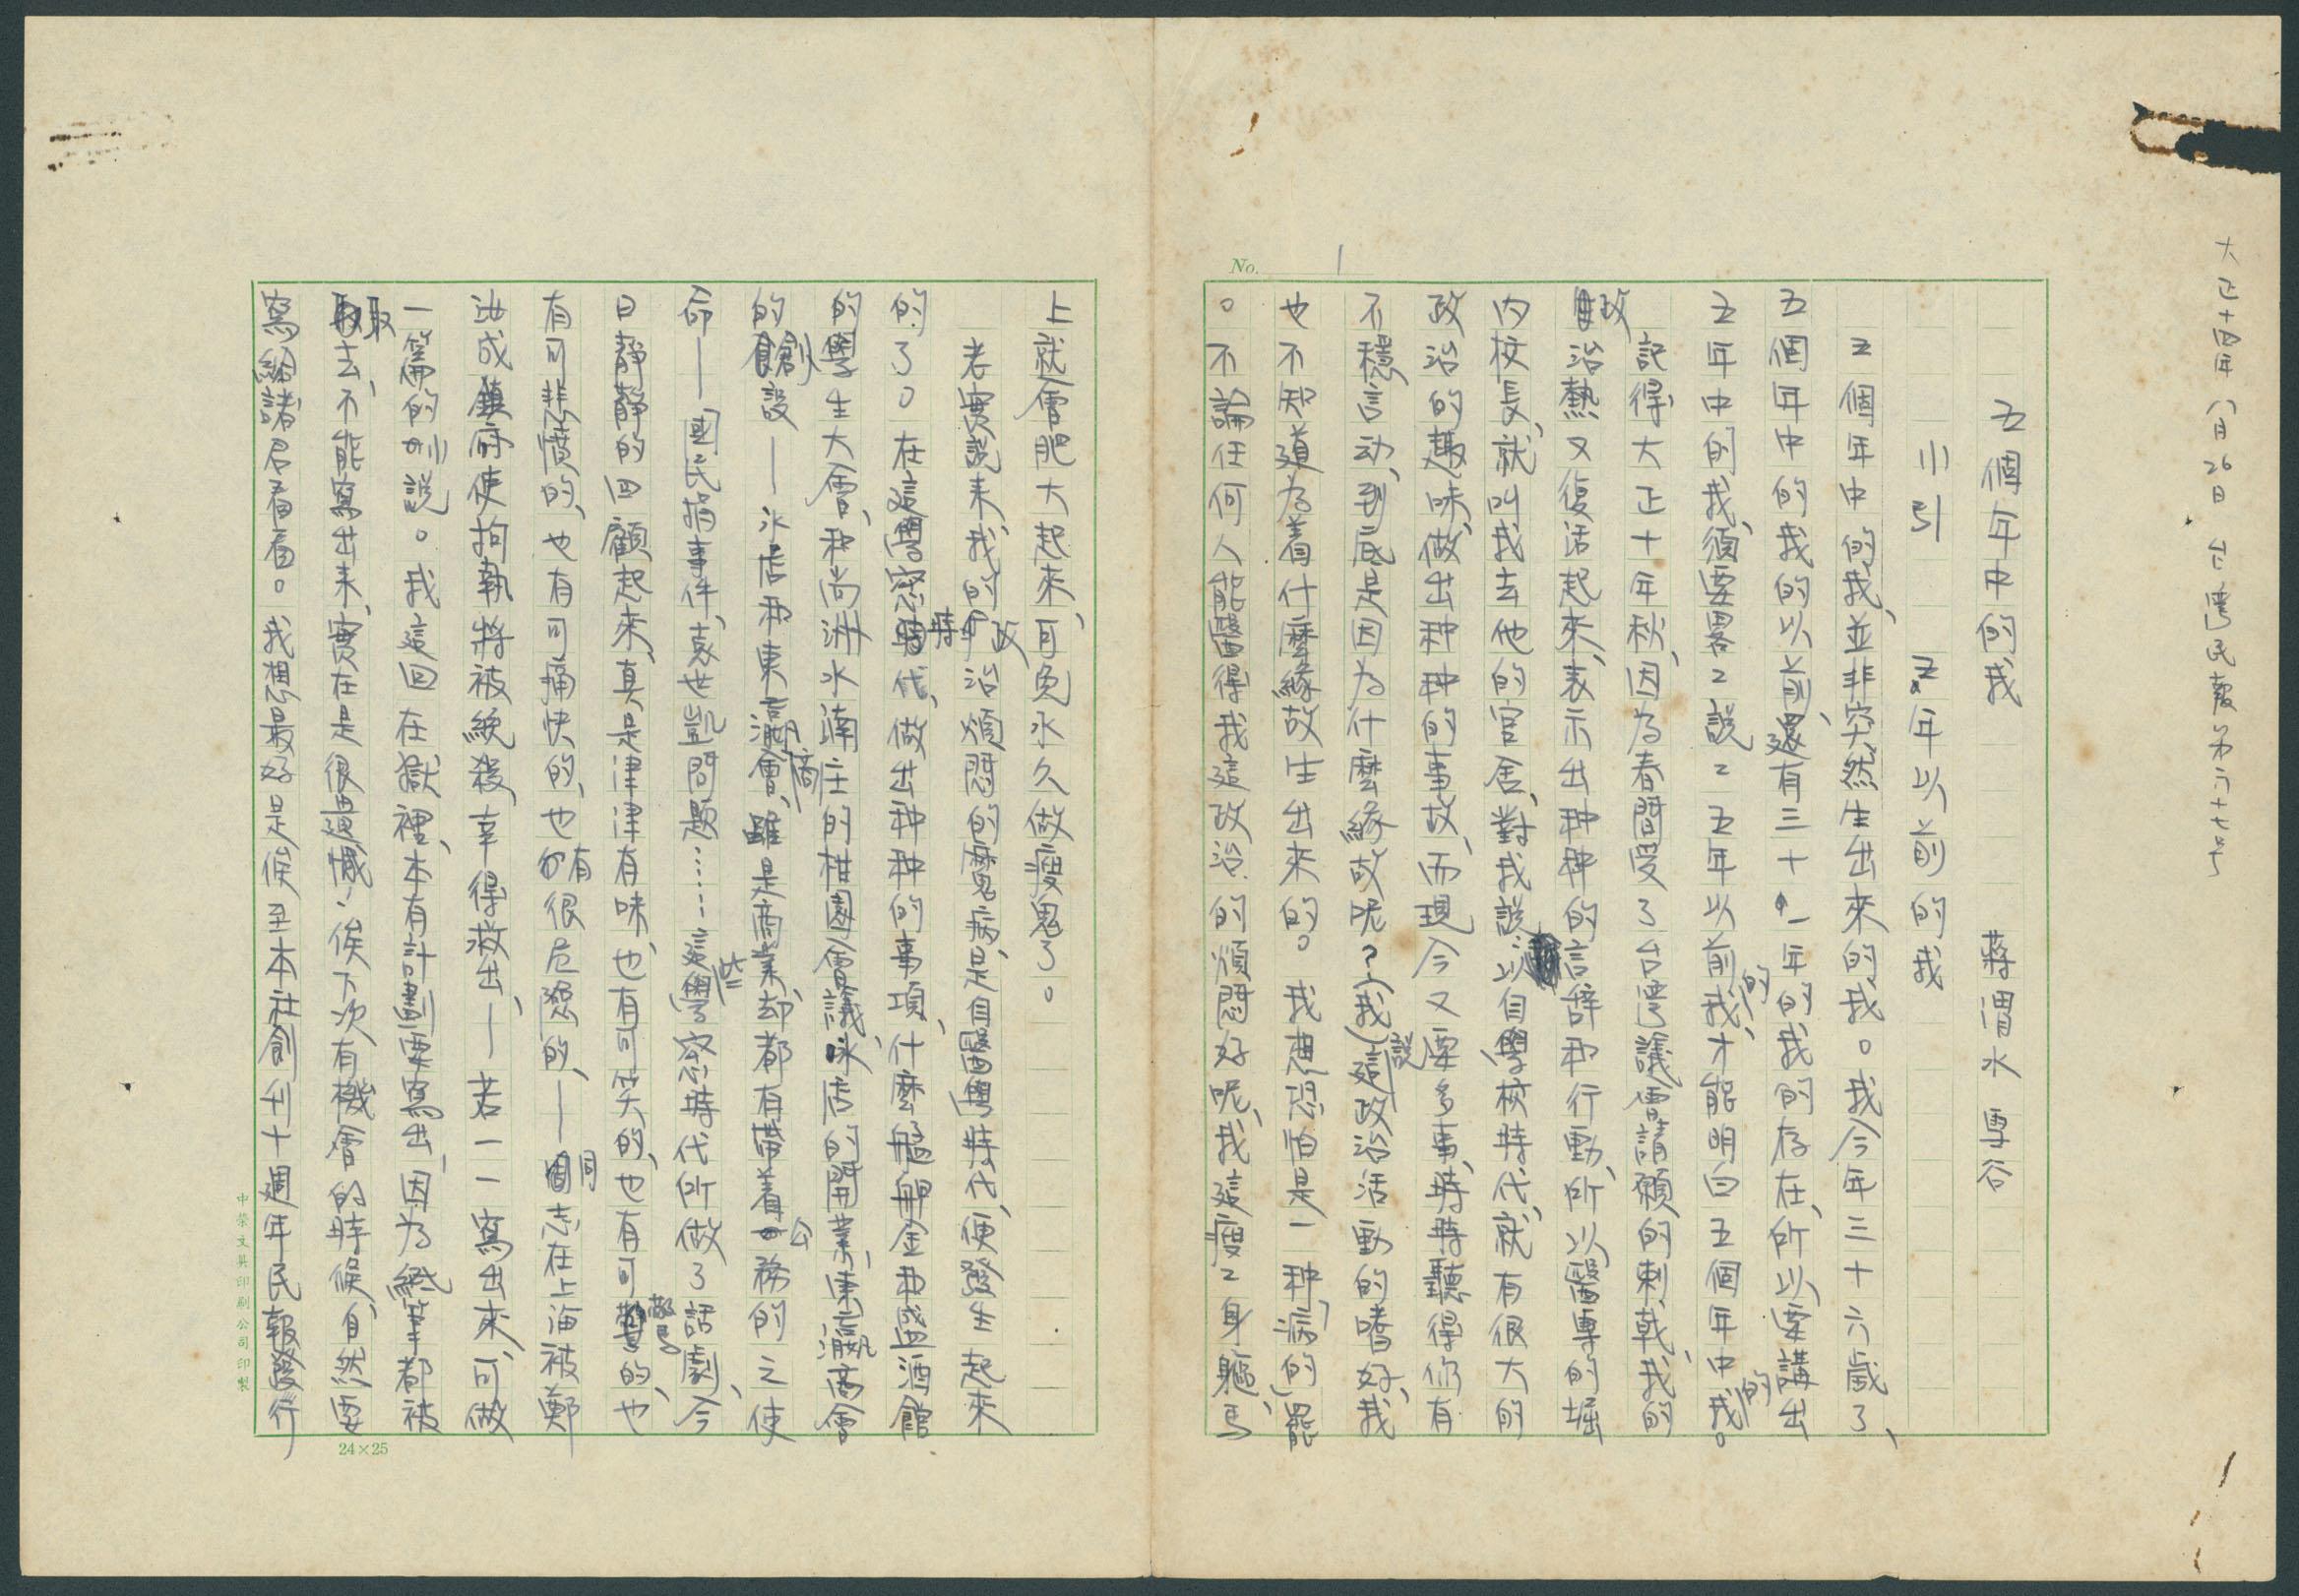 大正十四年八月26日 台灣民報第六十七号
No. 1
五個年中的我 蔣渭水 雪谷
小引 五年以前的我
五個年中的我、並非突然生出來的我。我今年三十六歲了、
五個年中的我的以前、還有三十一年的我的存在、所以要講出
五年中的我、須要畧々說々五年以前的我、才能明白五個年中的我。
記得大正十年秋、因為春間受了台灣議會請願的刺戟、我的
政治熱又復活起來、表示出种种的言辞和行動、所以醫專的堀
內校長、就叫我去他的官舍、對我說：以自學校時代、就有很大的
政治的趣味、做出种种的事故、而現今又要多事、時時聽得你有
不穩言动、到底是因為什麼緣故呢？我說（這政治活動的嗜好、我
也不知道為着什麼緣故生出來的。我想恐怕是一种病的罷
。不論任何人能醫得我這政治的煩悶好呢、我這瘦々身軀、馬
上就會肥大起來、可免永久做瘦鬼了。
老實說來、我的政治煩悶的魔病、是自醫學時代、便發生起來
的了。在這學窓時代、做出种种的事項、什麼艋舺金和盛酒館
的學生大會、和尚洲水湳庄的柑園會議、冰店的開業、東瀛商會
的創設——冰店和東瀛商會、雖是商業、却都有帶着公務的之使
命——國民捐事件、袁世凱問題……這些學窓時代所做了話劇、今
日靜靜的回顧起來、真是津津有味、也有可笑的、也有可驚的、也
有可悲憤的、也有可痛快的、也有很危險的、——同志在上海被鄭
汝成鎮守使拘執將被絞殺、幸得救出、——若一一寫出來、可做
一篇的小說。我這回在獄裡、本有計劃要寫出、因為紙筆都被
取去、不能寫出來、實在是很遺憾、俟下次有機會的時候、自然要
寫給諸君看看。我想最好是俟至本社創刊十週年民報發行
24×25
中榮文具印刷公司印製